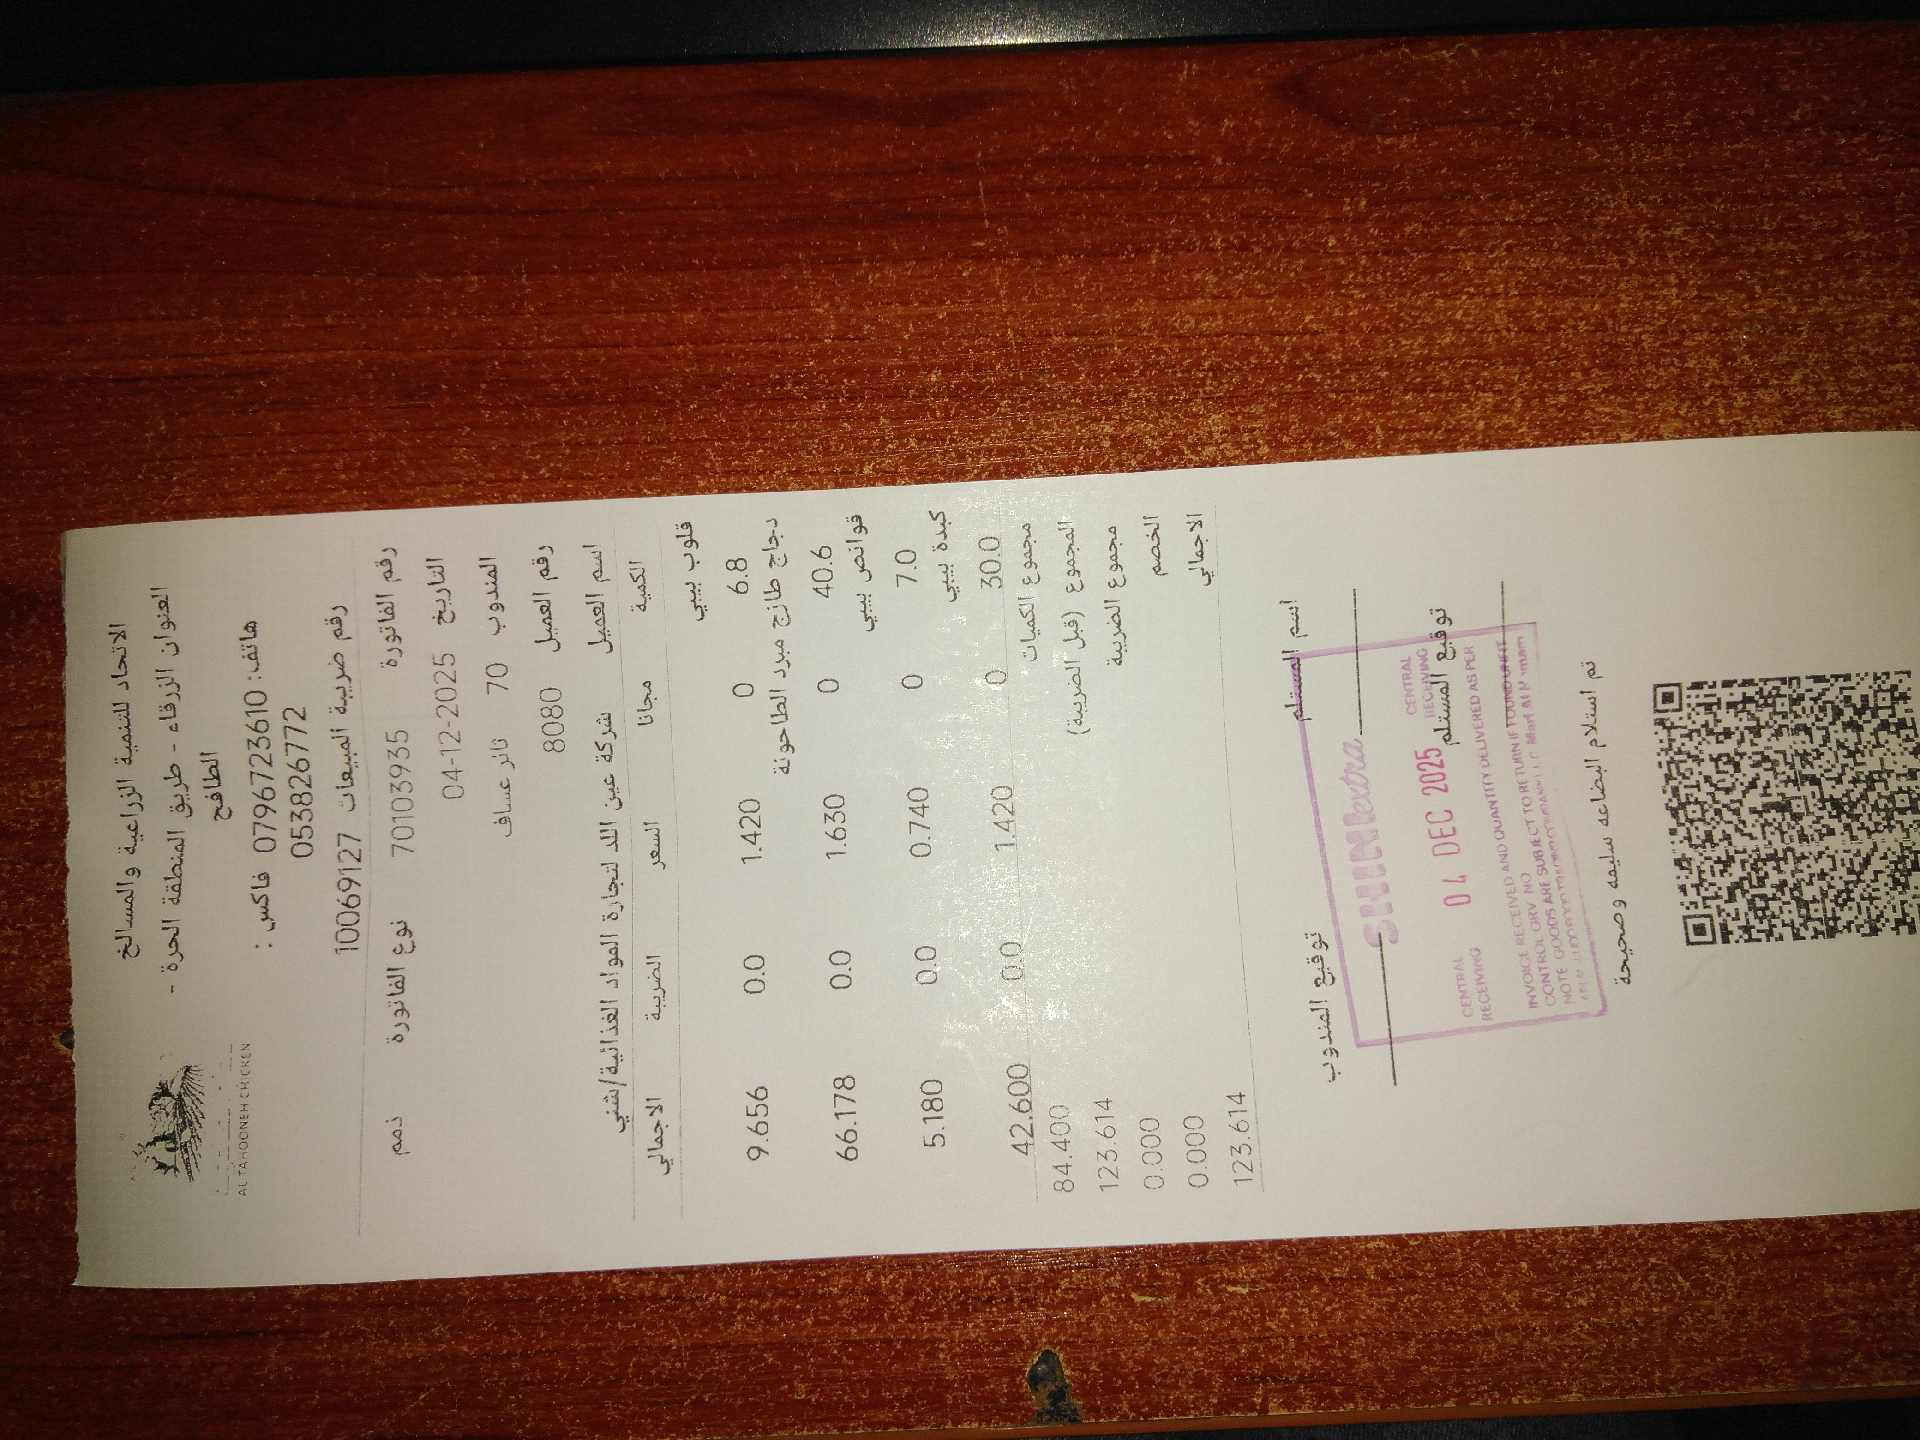 الاتحاد للتنمية الزراعية والمسالخ
العنوان الزرقاء - طريق المنطقة الحرة -
الطافح
هاتف: 0796723610 فاكس :
053826772
رقم ضريبة المبيعات 10069127
AL TAHOONEH CHICKEN
رقم الفاتورة 70103935 نوع الفاتورة ذمم
التاريخ 04-12-2025
المندوب 70 ثائر عساف
رقم العميل 8080
اسم العميل شركة عين اللد لتجارة المواد الغذائية/شني
الكمية مجانا السعر الضريبة الاجمالي
قلوب بيبي
6.8 0 1.420 0.0 9.656
دجاج طازج مبرد الطاحونة
40.6 0 1.630 0.0 66.178
قوانص بيبي
7.0 0 0.740 0.0 5.180
كبدة بيبي
30.0 0 1.420 0.0 42.600
مجموع الكميات 84.400
المجموع (قبل الضريبة) 123.614
مجموع الضريبة 0.000
الخصم 0.000
الاجمالي 123.614
اسم المستلم توقيع المندوب
توقيع المستلم
CENTRAL RECEIVING
04 DEC 2025
CENTRAL RECEIVING
INVOICE RECEIVED AND QUANTITY DELIVERED AS PER
CONTROL GRV NO
NOTE GOODS ARE SUBJECT TO RETURN IF FOUND UNFIT
تم استلام البضاعه سليمه وصحيحة